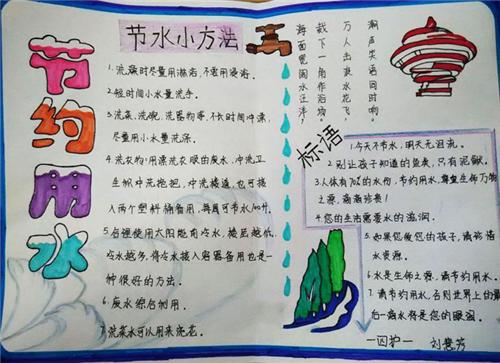 节约用水
节水小方法
1.洗澡时尽量用淋浴,不要用浸浴。
2.短时间小水量洗手。
3.洗菜、洗碗、洗器物等,不长时间冲漂,
尽量用小水量洗涤。
4.洗衣物:用漂洗衣服的废水,冲洗卫
生帜中洗拖把,冲洗楼道,也可接
入两个塑料桶备用,再周可节水100斤。
5.
冷水越多,将冷水接入容器备用也是一
种很好的方法。
6.废水综合利用。
7.洗菜水可以用来浇花。
潮声笑语同时响。
万人击浪水花飞,
截下一角作浴场。
海面宽阔水汪洋,
标语
1.今天不节水,明天无泪流。
2.别让孩子知道的鱼类,只有泥鳅。
3.人体有70%的水份,节约用水,尊重生命万物
之源,滴滴珍贵!
4.您的生活需要水的滋润。
5.如果您爱您的孩子,请珍惜
水资源。
6.水是生命之源,请节约用水。
7.请节约用水,否则世界上的最
后一滴水将是您的眼泪。
一四护一
刘慧芳